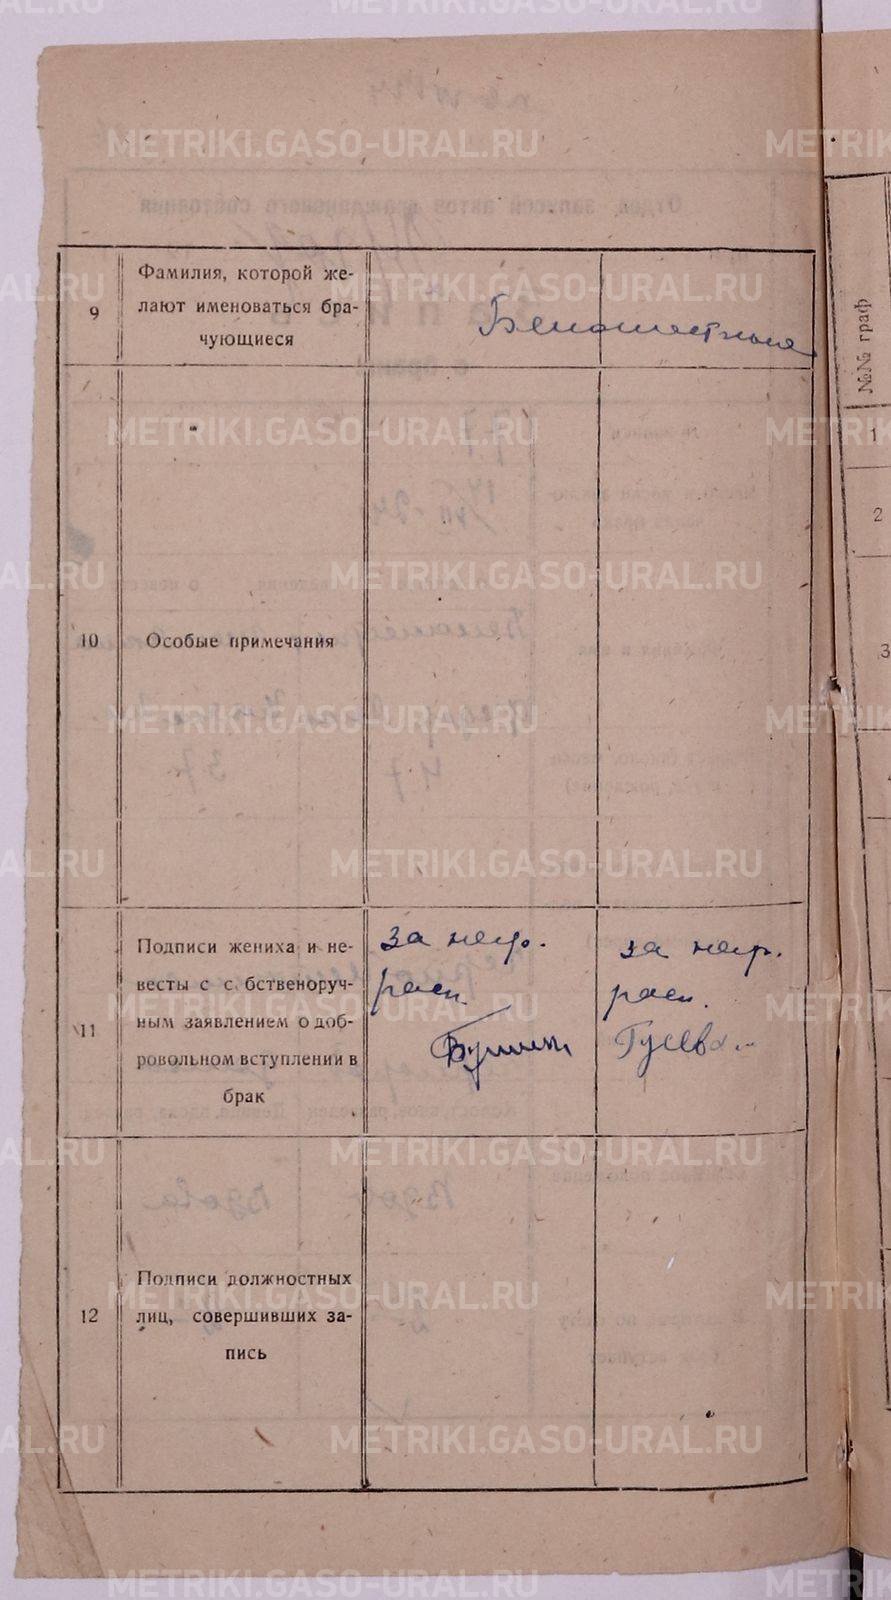 METRIKI.GASO-URAL.RU
9
Фамилия, которой же-
лают именоваться бра-
чующиеся
10
Особые примечания
11
Подписи жениха и не-
весты с с бственоруч-
ным заявлением о доб-
ровольном вступлении в
брак
за негр.
расп.
за негр.
расп.
Гусева
12
Подписи должностных
лиц, совершивших за-
пись
№№ граф
1
2
3